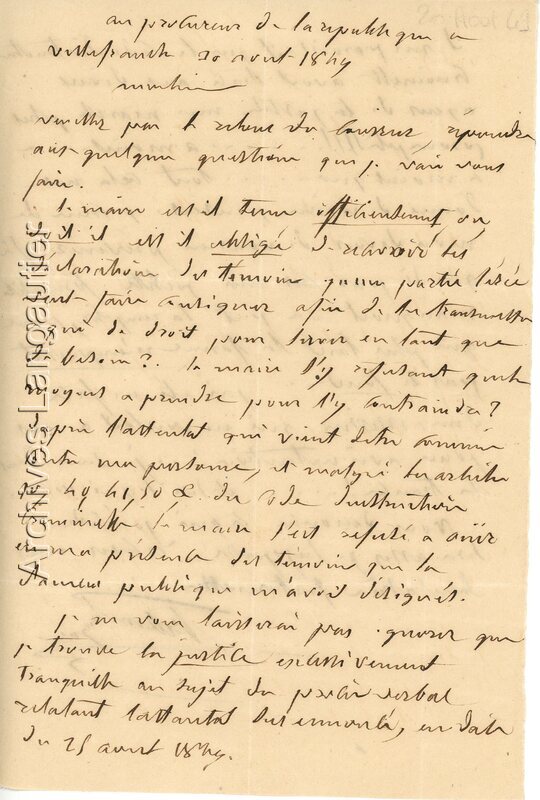 20 Aout [6]
au procureur de la republique a
villefranche 20 aout 1849
monsieur
veuillez par le retour du courrier, repondre
aux quelques questions que je vais vous
faire.
le maire est il tenu officieusement ou
s'il est il obligé de recevoir les
declarations des temoins qu'une partie lésée
veut faire consigner afin de les transmettre
a qui de droit pour servir en tant que
de besoin? le maire s'y refusant quels
moyens a prendre pour l'y contraindre?
d'après l'attentat qui vient d'etre commis
contre ma personne, et malgré les articles
49, 50 &. du code d'instruction
criminelle le maire s'est refusé a ouir
en ma présence des temoins que la
clameur publique m'avoit désignés.
je ne vous laisserai pas ignorer que
je trouve la justice excessivement
tranquille au sujet du procès verbal
relatant l'attentat sus enoncé, en date
du 25 avril 1849.
Archives-Langautier